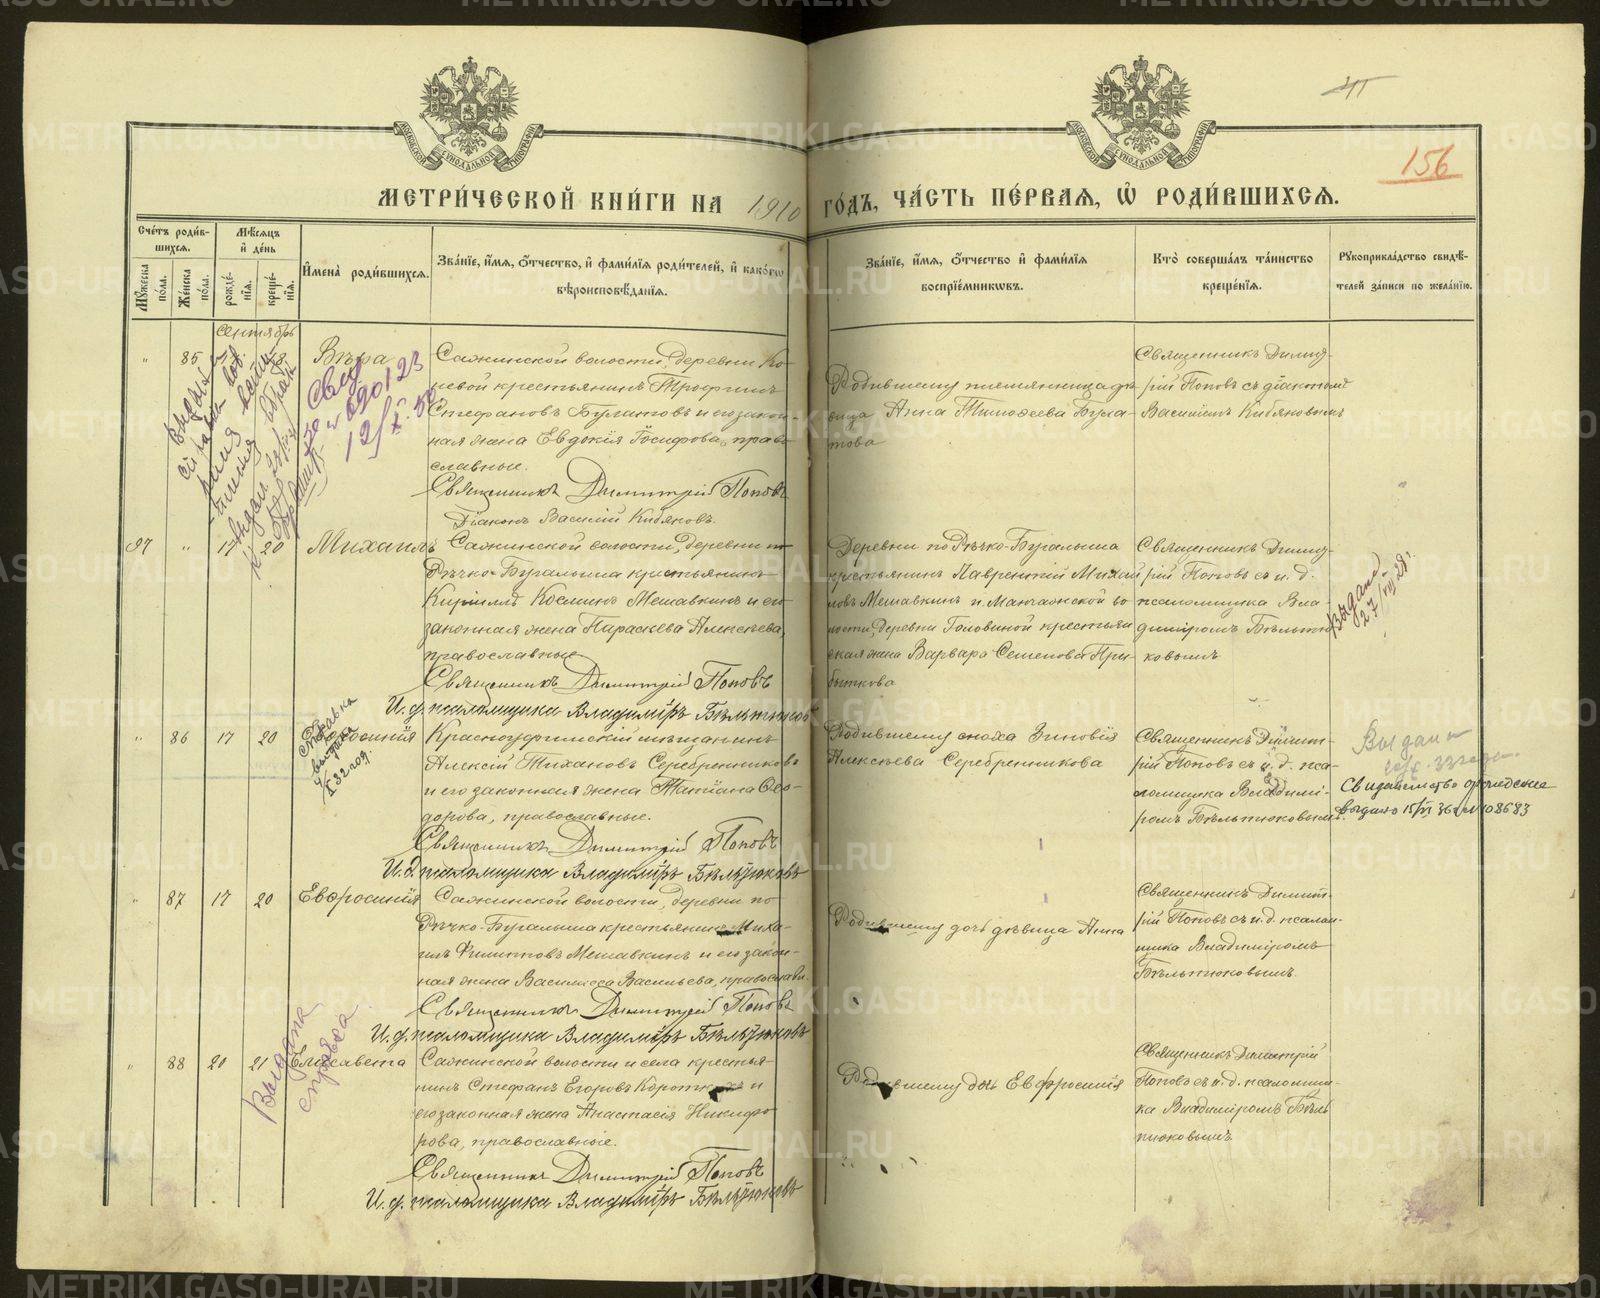 МЕТРИ́ЧЕСКОЙ КНИ́ГИ НА 1910 ГО́ДЪ, ЧА́СТЬ ПЕ́РВАЯ, Ѡ҆ РОДИ́ВШИХСЯ.
156
Сче́тъ роди́в-
шихся.
Мѣ́сяцъ
и҆ де́нь
Мꙋ́жеска
по́ла.
Же́нска
по́ла.
рожде́-
нїя.
креще́-
нїя.
И҆мена̀ роди́вшихся.
Зва́нїе, и҆́мя, ѻ҆́тчество, и҆ фами́лїя роди́телей, и҆ како́гѡ
вѣроисповѣ́данїя.
Зва́нїе, и҆́мя, ѻ҆́тчество и҆ фами́лїя
воспрїе́мникѡвъ.
Кто̀ соверша́лъ та́инство
креще́нїя.
Рꙋкоприкла́дство свидѣ́-
телей за́писи по жела́нїю.
Сентябрь
" 85
18
Вѣра
Сажинской волости, деревни Ко-
невой крестьянинъ Трофимъ
Стефановъ Булатовъ и его закон-
ная жена Евдокія Іосифова, право-
славные.
Священникъ Димитрій Поповъ
Діаконъ Василій Кибяковъ.
Родившему племянница дѣ-
вица Анна Тимоѳеева Була-
това
Священникъ Димит-
рій Поповъ съ діакономъ
Василіемъ Кибяковымъ
97 " 17 20
Михаилъ
Сажинской волости, деревни по
Рѣчко-Бугалыша крестьянинъ
Кириллъ Косминъ Мешавкинъ и его
законная жена Параскева Алексѣева,
православные
Священникъ Димитрій Поповъ
И. д. псаломщика Владиміръ Бѣльтюковъ
Деревни по Рѣчко-Бугалыша
крестьянинъ Лаврентій Михай-
ловъ Мешавкинъ и Манчажской во-
лости, деревни Головиной крестьян-
ская жена Варвара Семенова При-
быткова
Священникъ Димит-
рій Поповъ съ и. д.
псаломщика Вла-
диміромъ Бѣльтю-
ковымъ
Выдана
27/VII 28 г.
" 86 17 20
Евфросинія
Справка
выдана
X 32 год.
Красноуфимскій мѣщанинъ
Алексій Тихановъ Серебренниковъ
и его законная жена Татіана Ѳео-
дорова, православные.
Священникъ Димитрій Поповъ
И. д. псаломщика Владиміръ Бѣльтюковъ
Родившему сноха Зиновія
Алексѣева Серебренникова
Священникъ Димит-
рій Поповъ съ и. д. пса-
ломщика Владимі-
ромъ Бѣльтюковымъ
Выдана
33 года
Свидетельство о рождение
выдано 15/VI 36 г. № 108683
" 87 17 20
Евфросинія
Сажинской волости, деревни по
Рѣчко-Бугалыша крестьянинъ Миха-
илъ Филипповъ Мешавкинъ и его закон-
ная жена Василисса Васильева, православн.
Священникъ Димитрій Поповъ
И. д. псаломщика Владиміръ Бѣльтюковъ
Родившему дочь дѣвица Анна
Священникъ Димит-
рій Поповъ съ и. д. псалом-
щика Владиміромъ
Бѣльтюковымъ.
" 88 20 21
Елисавета
Выдана
справка
Сажинской волости и села крестья-
нинъ Стефанъ Егоровъ Коротковъ и
его законная жена Анастасія Никифо-
рова, православные.
Священникъ Димитрій Поповъ
И. д. псаломщика Владиміръ Бѣльтюковъ
Родившему дочь Евфросинія
Священникъ Димитрій
Поповъ съ и. д. псаломщи-
ка Владиміромъ Бѣль-
тюковымъ
METRIKI.GASO-URAL.RU